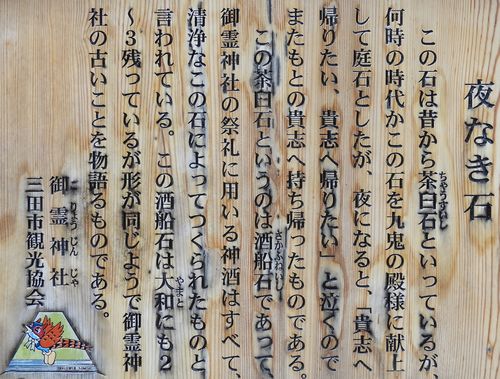 夜なき石
この石は昔から茶臼石といっているが、
何時の時代かこの石を九鬼の殿様に献上
して庭石としたが、夜になると、「貴志へ
帰りたい、貴志へ帰りたい」と泣くので
またもとの貴志へ持ち帰ったものである。
この茶臼石というのは酒船石であって、
御霊神社の祭礼に用いる神酒はすべて、
清浄なこの石によってつくられたものと
言われている。この酒船石は大和にも2
～3残っているが形が同じようで御霊神
社の古いことを物語るものである。
御霊神社
三田市観光協会